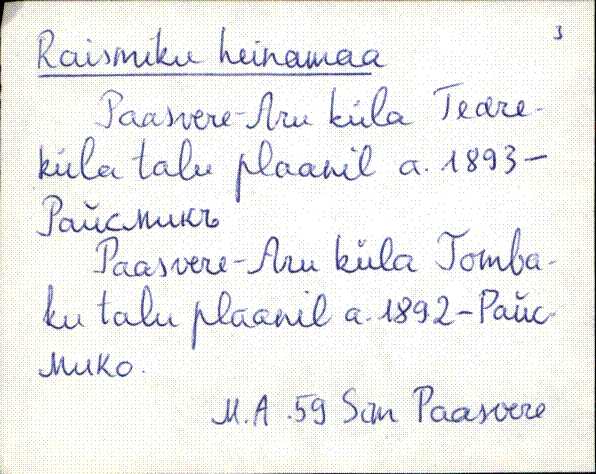 3
Raismiku heinamaa
Paasvere-Aru küla Tedre-
küla talu plaanil a. 1893-
Райсмикъ
Paasvere-Aru küla Tomba-
ku talu plaanil a. 1892-Райс-
мико.
M.A. 59 Sim Paasvere